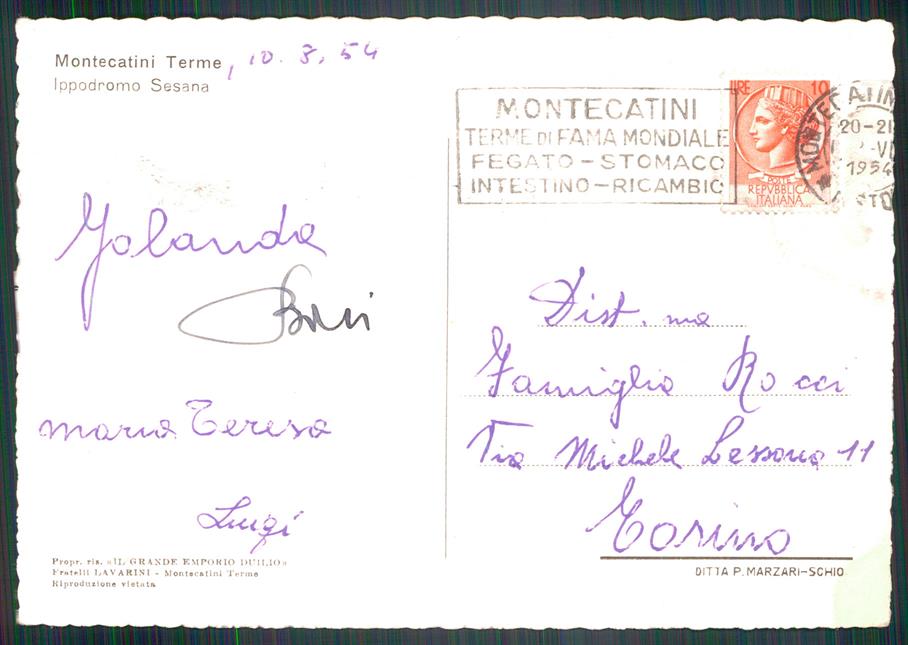 Montecatini Terme, 10. 8. 54
Ippodromo Sesana
MONTECATINI
TERME DI FAMA MONDIALE
FEGATO - STOMACO
INTESTINO - RICAMBIO
LIRE 10
POSTE
REPVBBLICA
ITALIANA
MONTECATINI
20-21
1954
Yolanda
Maria Teresa
Luigi
Dist. ma
Famiglia Rocci
Via Michele Lessona 11
Torino
Propr. ris. «IL GRANDE EMPORIO DUILIO»
Fratelli LAVARINI - Montecatini Terme
Riproduzione vietata
DITTA P. MARZARI-SCHIO